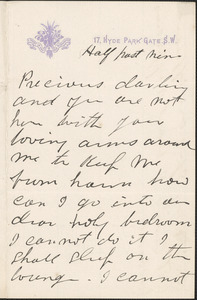 17, HYDE PARK GATE, S.W.
Half past nine
Precious darling
and you are not
here with your
loving arms around
me to keep me
from harm how
can I go into our
dear holy bedroom
I cannot do it I
shall sleep on the
lounge. I cannot